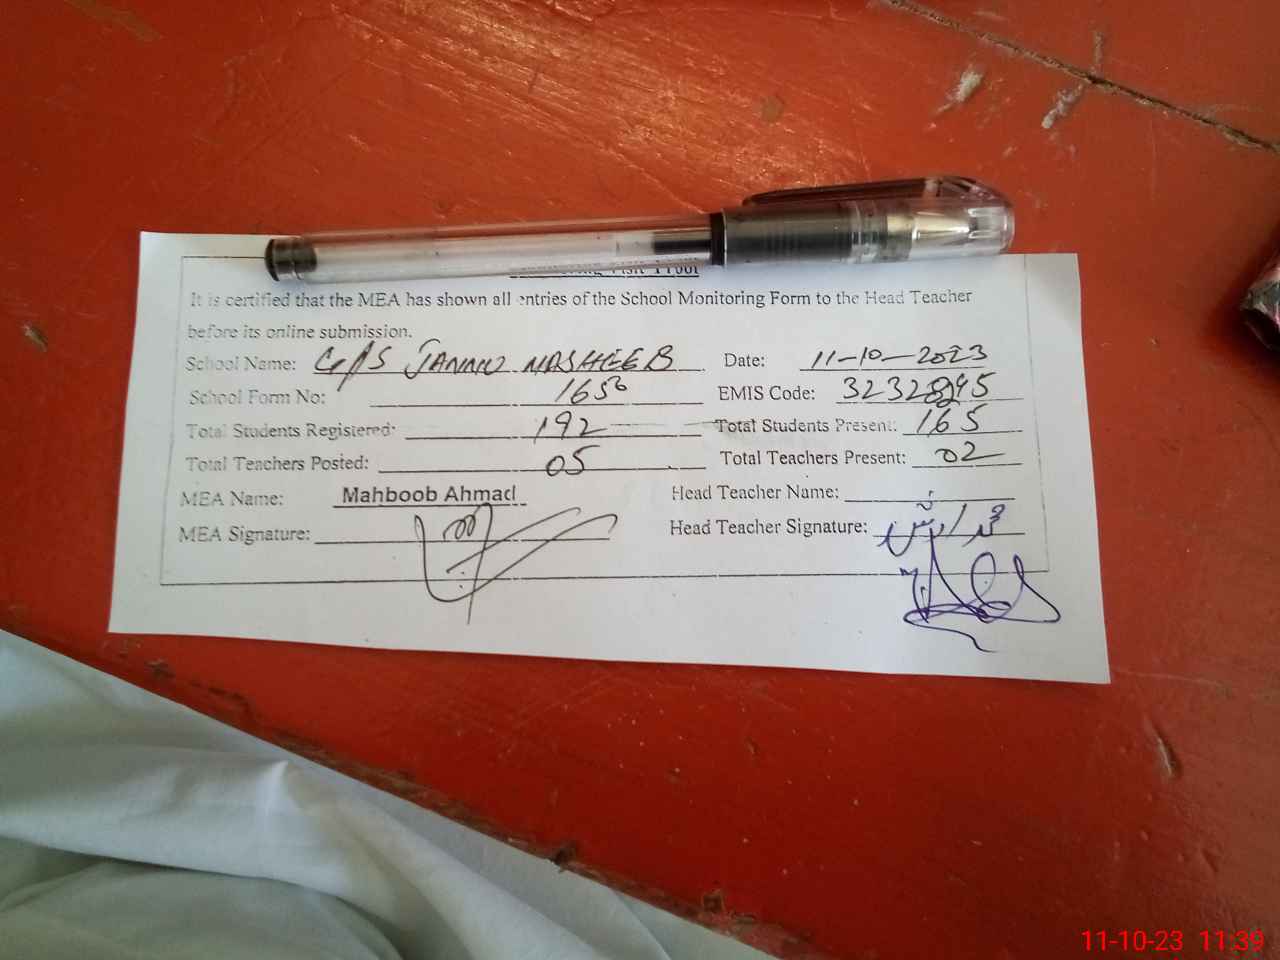 It is certified that the MEA has shown all entries of the School Monitoring Form to the Head Teacher
before its online submission.
School Name: G/S JANNU NASHEEB Date: 11-10-2023
School Form No: 1650 EMIS Code:
Total Students Registered: 192 Total Students Present: 165
Total Teachers Posted: 05 Total Teachers Present: 02
MEA Name: Mahboob Ahmad Head Teacher Name:
MEA Signature: Head Teacher Signature:
11-10-23 11:39